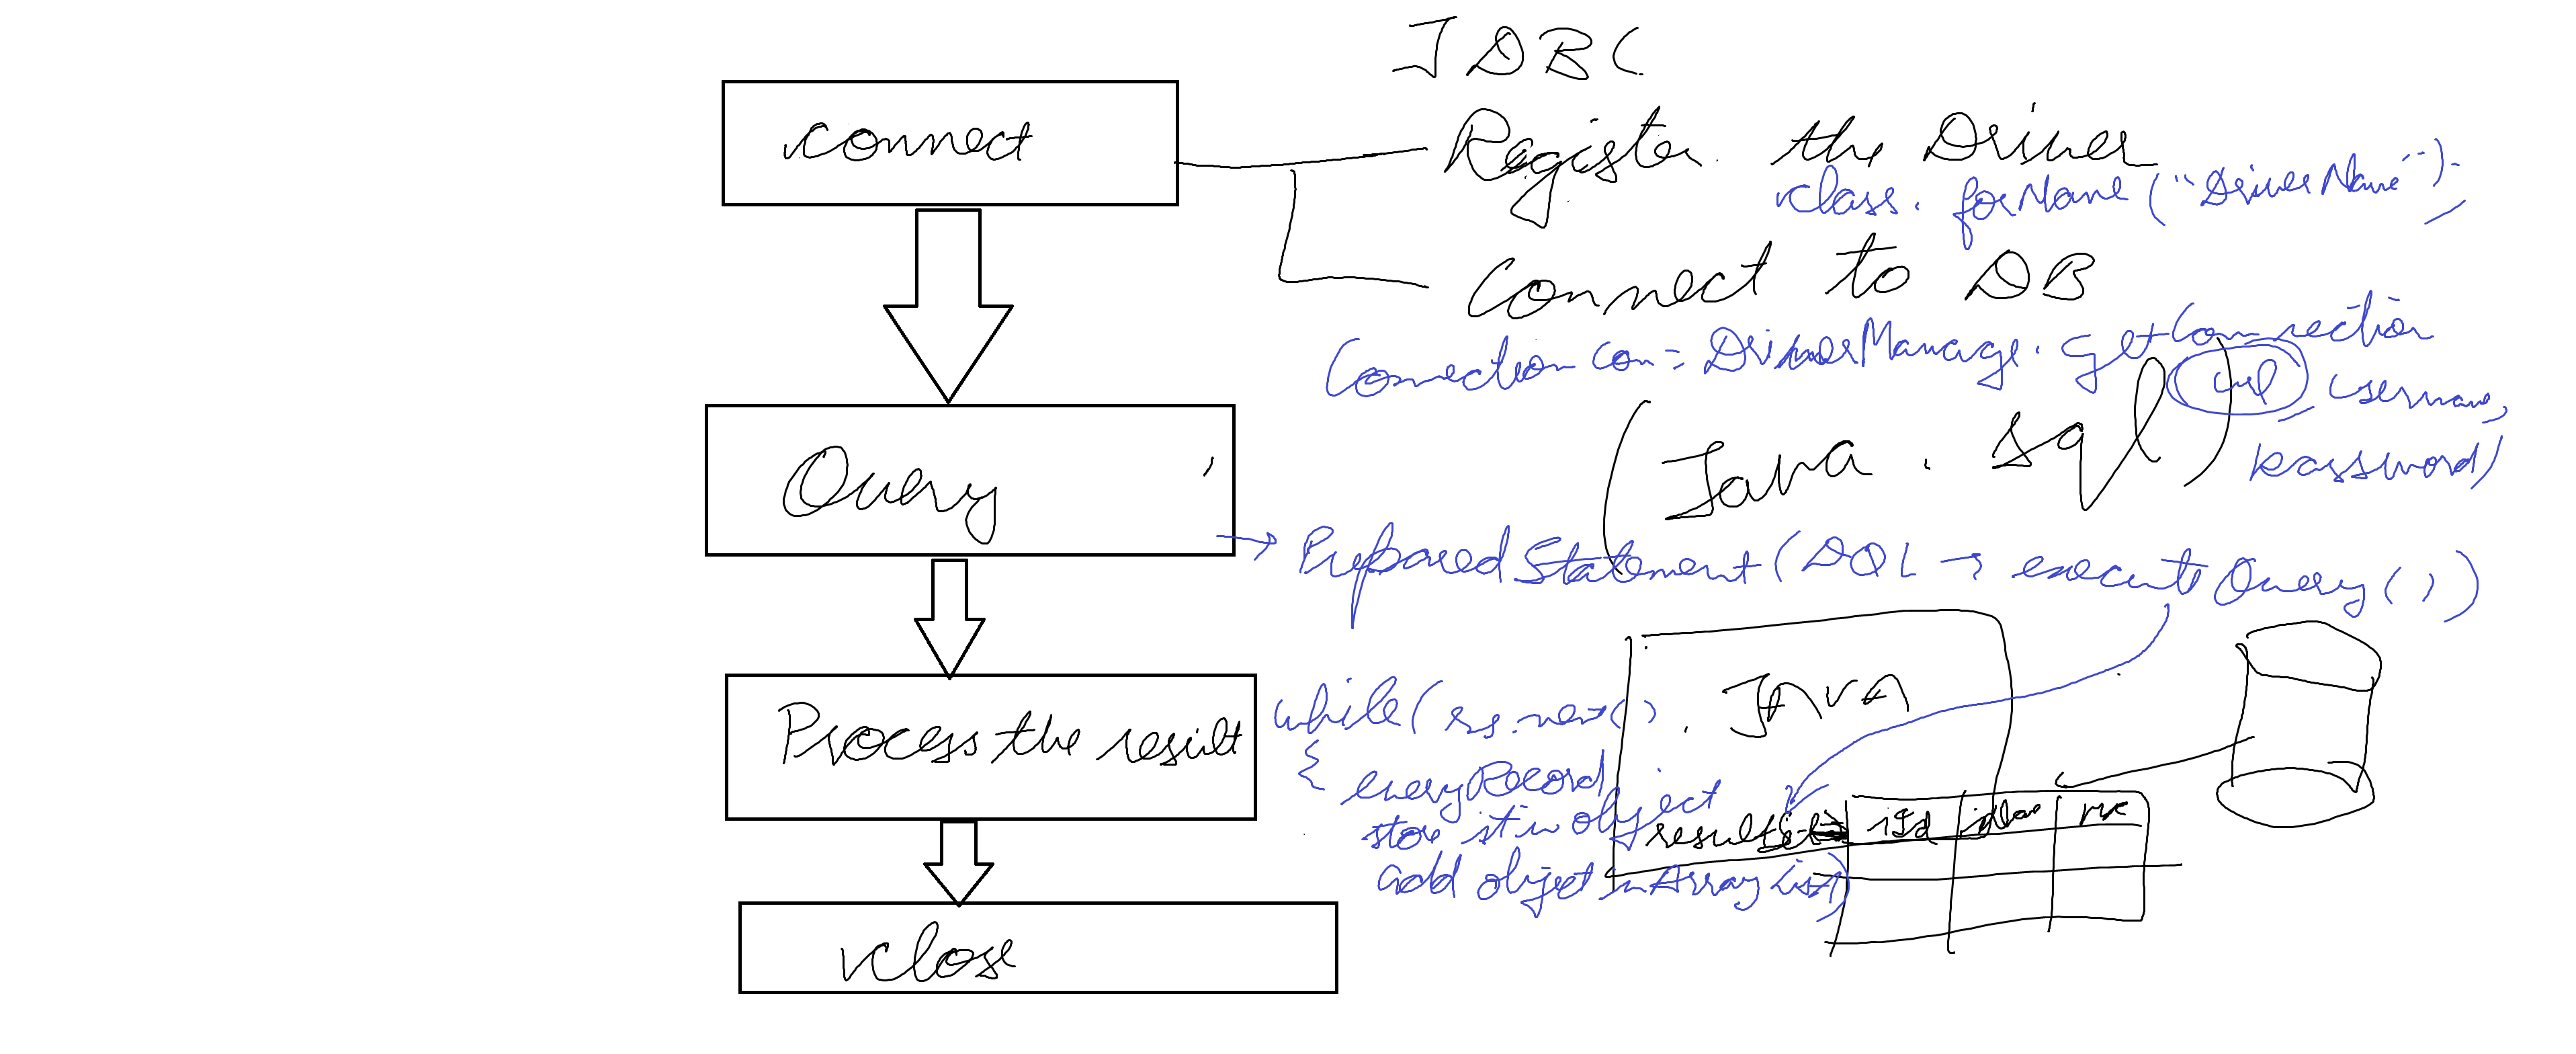 JDBC
connect
Register the Driver
class.forName("DriverName");
Connect to DB
Connection con = DriverManage.getConnection
(url, username,
password)
(Java.sql)
Query
→ PreparedStatement (DQL → executeQuery())
JAVA
Process the result
while(rs.next()
{
everyRecord
store it in object
add object in ArrayList)
resultset
close